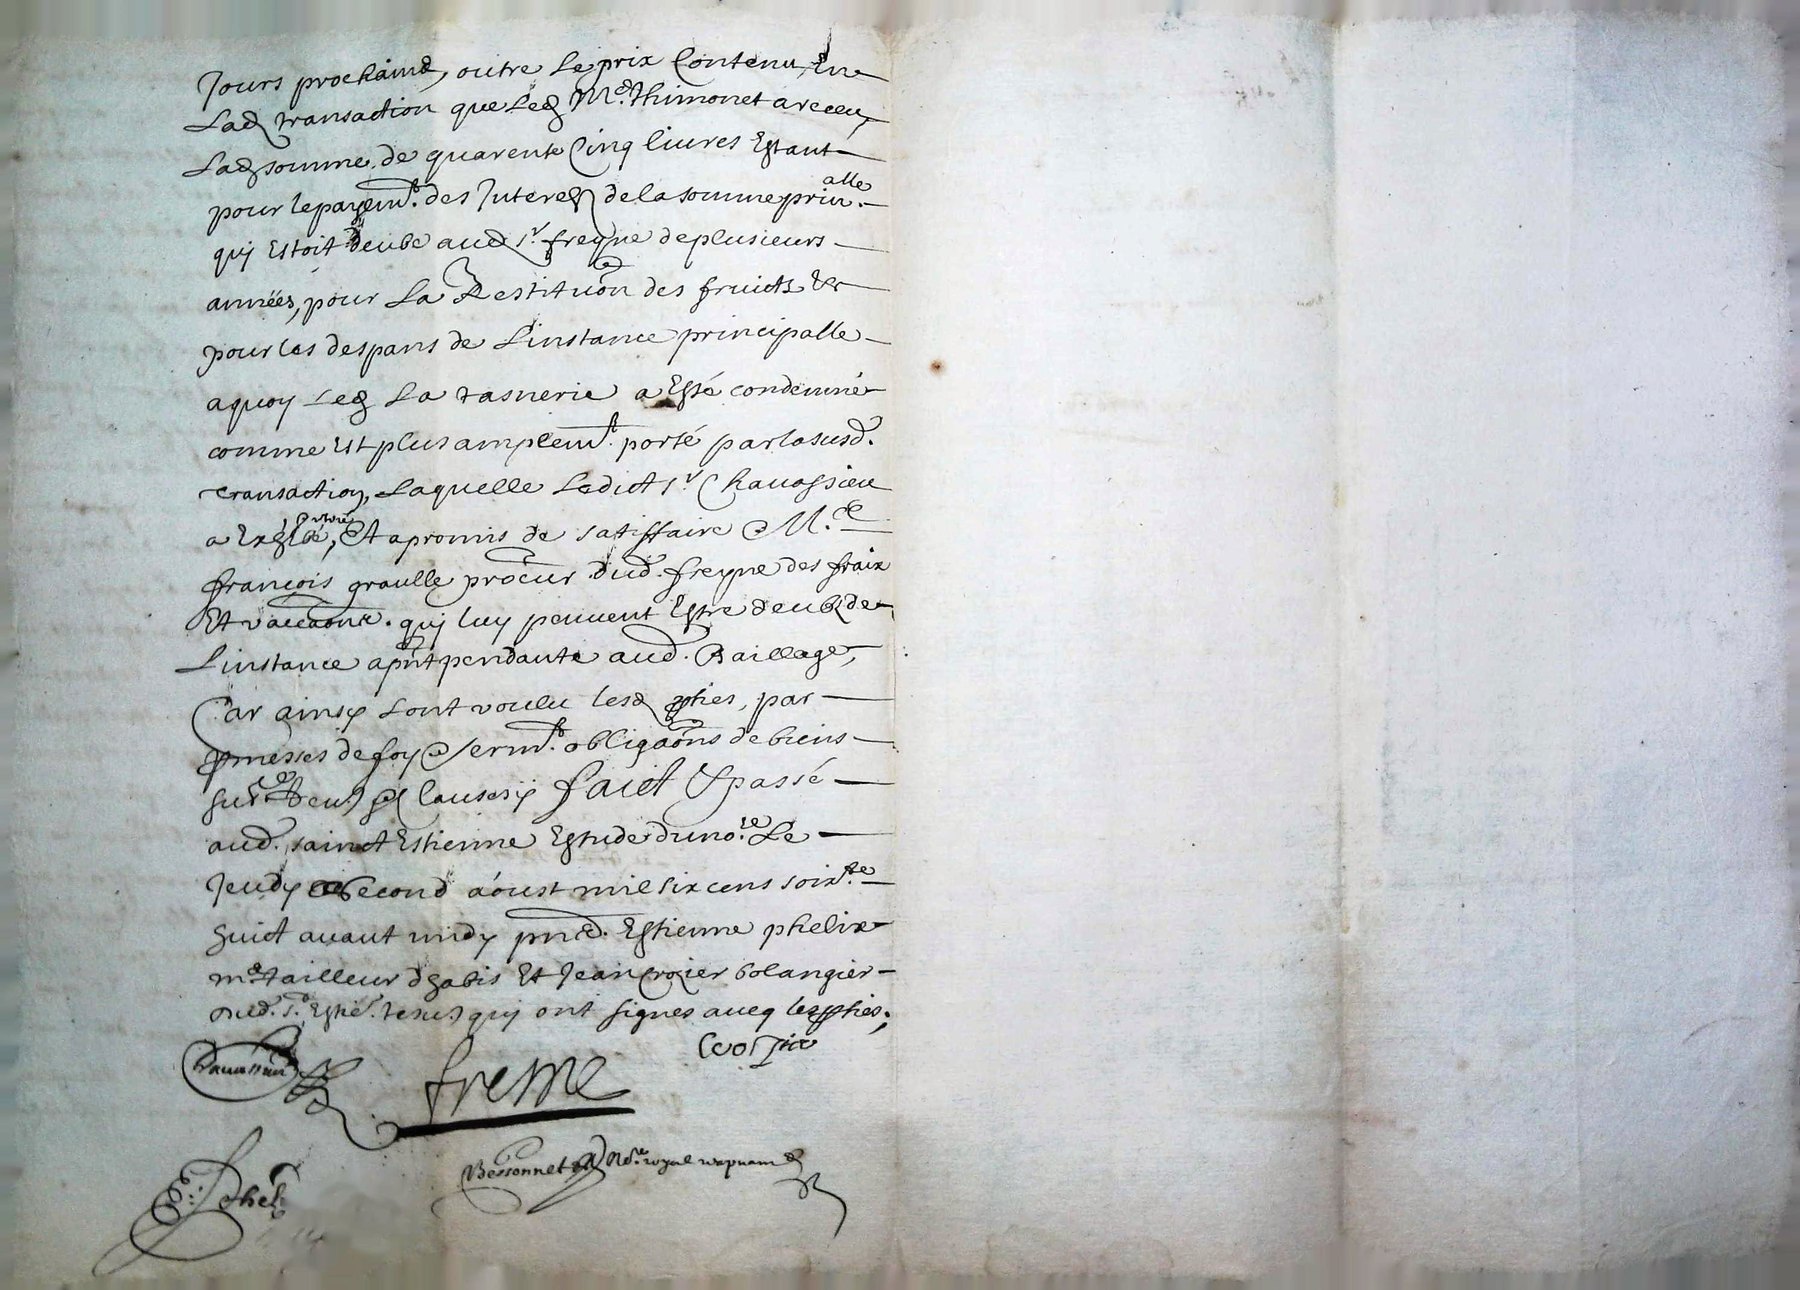 Jours prochaine, outre le prix Contenu, En
Lad transaction que led Me. thimonet a receu,
Lad somme de quarente Cinq livres Estant
pour le payemt. des Interes de la somme prin.alle
quj Estoit deube aud sr. freyne de plusieurs
années, pour La Restituõn des fruicts Et
pour les despans de L'instance principalle
a quoy Led La tasnerie a Esté condemné
comme Est plus amplemt. porté par la susd.
transaction, Laquelle Ledict sr Chavassieu
a Et a promis de satisffaire a M.e
françois graulle procur. dud. freyne des fraix
Et quj luy peuvent Estre deubz de
L'instance apñt pendante aud. Baillage,
Car ainsy Lont voulu lesd pties, par
pmesses de foy serm.t obligaõns de biens
clauses faict & passé
aud. sainct Estienne Estude du no.re Le
Jeudy second aoust mil six cens soix.te
huict avant midy pnts. Estienne phelix
me. tailleur dhabis Et Jean crozier bolangier
dud. st. Estie. tesm. quj ont signes avec les pties;
Crozier
Chavassieu
freyne
Bessonnet No.re royal
E. Phel